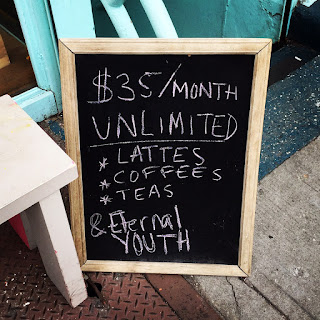 $35/MONTH
UNLIMITED
* LATTES
* COFFEES
* TEAS
& Eternal
YOUTH